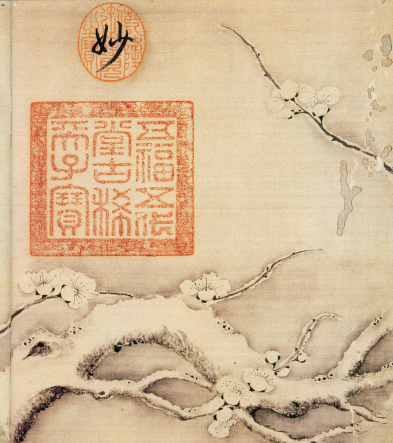 妙
五福五代
堂古稀
天子寶